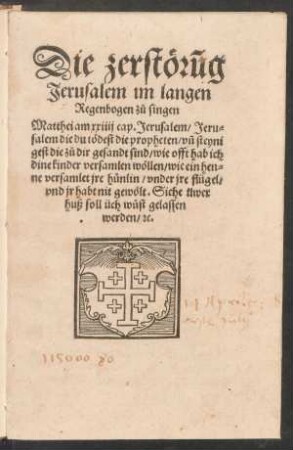 Die zerstörūg
Jerusalem im langen
Regenbogen zů singen
Matthei am xxiiij cap. Jerusalem/ Jeru-
salem die du tödest die propheten/ vñ steyni
gest die zů dir gesandt sind/ wie offt hab ich
dine kinder versamlen wöllen/ wie ein hen-
ne versamlet jre hünlin/ vnder jre flügel/
vnd jr habt nit gewölt. Siche üwer
huß soll üch wüst gelassen
werden/ ꝛc.
115000 80